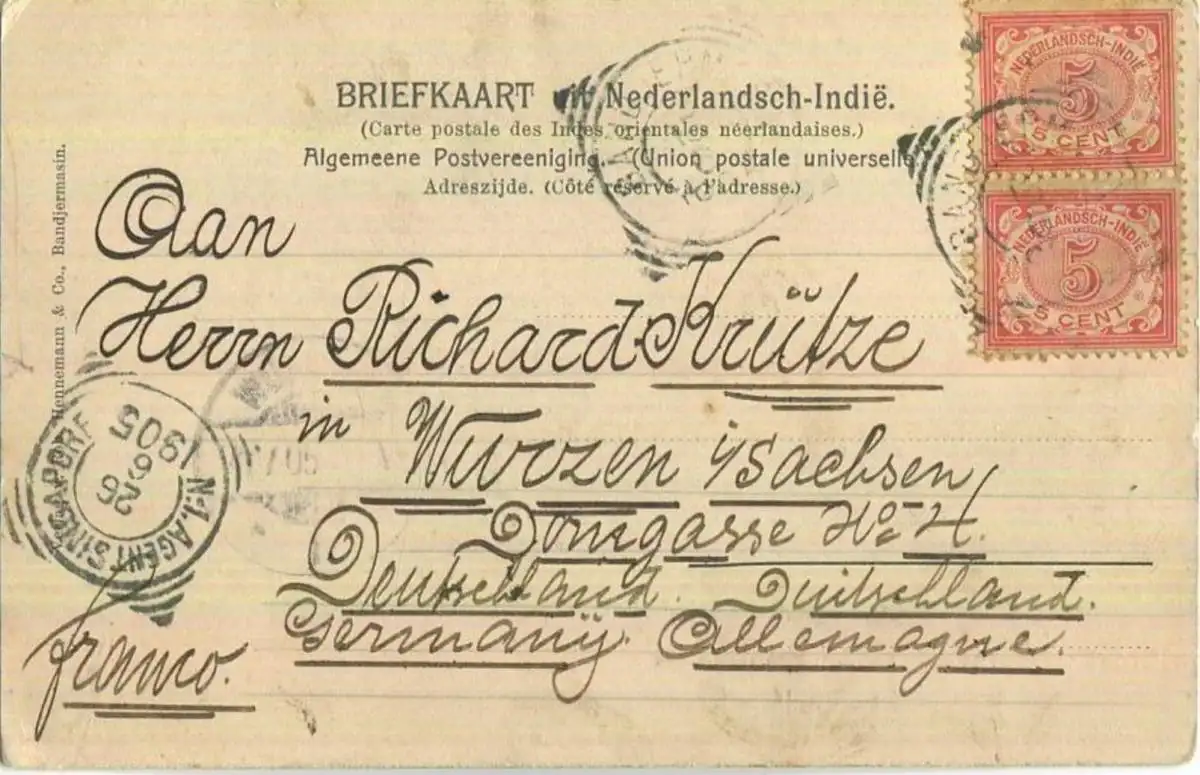 BRIEFKAART uit Nederlandsch-Indië.
(Carte postale des Indes orientales néerlandaises.)
Algemeene Postvereeniging. (Union postale universelle
Adreszijde. (Côté réservé à l'adresse.)
NEDERLANDSCH-INDIË
5
5 CENT
NEDERLANDSCH-INDIË
5
5 CENT
Hennemann & Co., Bandjermasin.
Aan
Herrn Richard Krütze
in Wurzen i/Sachsen
Domgasse No 4.
Deutschland. Duitschland.
Germany. Allemagne.
franco.
N.I. AGENT SINGAPORE
1905